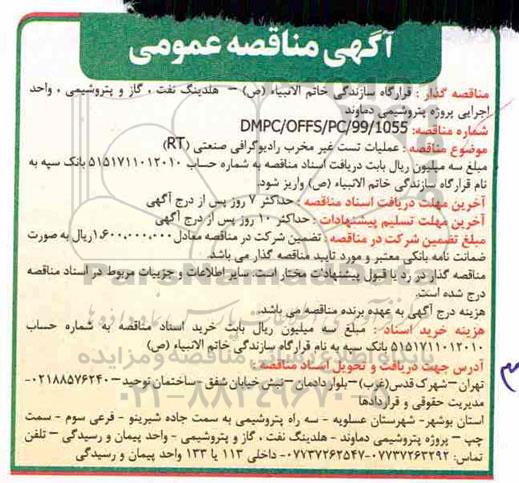 آگهی مناقصه عمومی
مناقصه گذار : قرارگاه سازندگی خاتم الانبیاء (ص) – هلدینگ نفت ، گاز و پتروشیمی ، واحد
اجرایی پروژه پتروشیمی دماوند
شماره مناقصه: DMPC/OFFS/PC/99/1055
موضوع مناقصه : عملیات تست غیر مخرب رادیوگرافی صنعتی (RT)
مبلغ سه میلیون ریال بابت دریافت اسناد مناقصه به شماره حساب ۵۱۵۱۷۱۱۰۱۲۰۱۰ بانک سپه به
نام قرارگاه سازندگی خاتم الانبیاء (ص) واریز شود.
آخرین مهلت دریافت اسناد مناقصه : حداکثر ۷ روز پس از درج آگهی
آخرین مهلت تسلیم پیشنهادات : حداکثر ۱۰ روز پس از درج آگهی
مبلغ تضمین شرکت در مناقصه : تضمین شرکت در مناقصه معادل ۱،۶۰۰،۰۰۰،۰۰۰ریال به صورت
ضمانت نامه بانکی معتبر و مورد تایید مناقصه گذار می باشد.
مناقصه گذار در رد یا قبول پیشنهادات مختار است. سایر اطلاعات و جزییات مربوط در اسناد مناقصه
درج شده است.
هزینه درج آگهی به عهده برنده مناقصه می باشد.
هزینه خرید اسناد : مبلغ سه میلیون ریال بابت خرید اسناد مناقصه به شماره حساب
۵۱۵۱۷۱۱۰۱۲۰۱۰ بانک سپه به نام قرارگاه سازندگی خاتم الانبیاء (ص)
آدرس جهت دریافت و تحویل اسناد مناقصه :
تهران – شهرک قدس(غرب) – بلوار دادمان – نبش خیابان شفق – ساختمان توحید – ۰۲۱۸۸۵۷۶۲۴۰-
مدیریت حقوقی و قراردادها
استان بوشهر- شهرستان عسلویه - سه راه پتروشیمی به سمت جاده شیرینو - فرعی سوم - سمت
چپ – پروژه پتروشیمی دماوند - هلدینگ نفت ، گاز و پتروشیمی - واحد پیمان و رسیدگی – تلفن
تماس: ۰۷۷۳۷۲۶۳۲۹۲-۰۷۷۳۷۲۶۲۵۴۷- داخلی ۱۱۳ یا ۱۳۳ واحد پیمان و رسیدگی
ParsNamadData
پایگاه اطلاع رسانی مناقصه و مزایده
۰۲۱-۸۸۳۴۹۶۷۰-۵